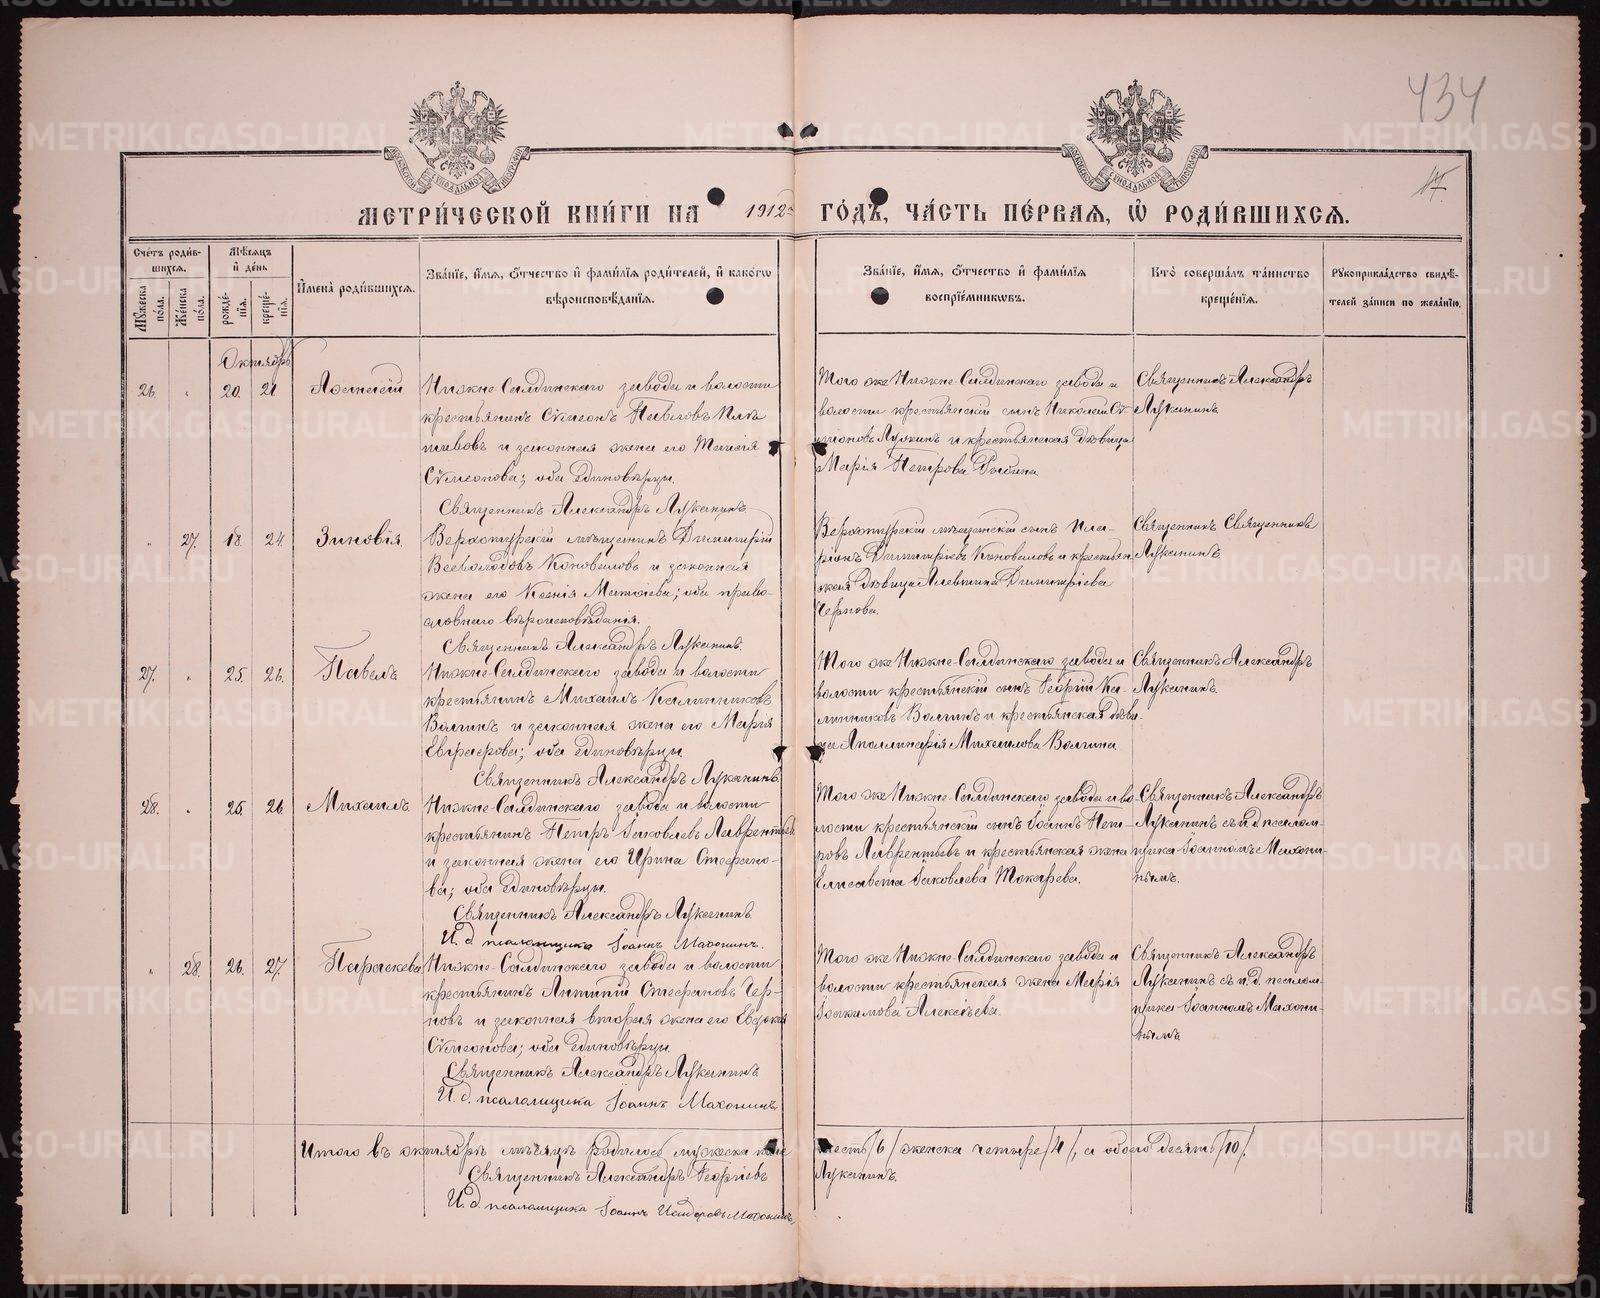 434
МЕТРИ́ЧЕСКОЙ КНИ́ГИ НА 1912 ГО́ДЪ, ЧА́СТЬ ПЕ́РВАЯ, Ѽ РОДИ́ВШИХСЯ.
Сче́тъ роди́в-
шихся.
Мѣ́сяцъ
и҆ де́нь
Мꙋ́жеска по́ла.
Же́нска по́ла.
рожде́-
нїя.
креще́-
нїя.
И҆мена̀ роди́вшихся.
Зва́нїе, и҆́мя, ѻ҆́тчество и҆ фами́лїя роди́телей, и҆ како́гѡ
вѣроисповѣ́данїя.
Зва́нїе, и҆́мя, ѻ҆́тчество и҆ фами́лїя
воспрїе́мникѡвъ.
Кто̀ соверша́лъ та́инство
креще́нїя.
Рꙋкоприкла́дство свидѣ́-
телей за́писи по жела́нїю.
Октябрь
26. " 20. 21
Нижне-Салдинскаго завода и волости
крестьянинъ Сѵмеонъ Павловъ
и законная жена его Таисія
Сѵмеонова; оба единовѣрцы.
Священникъ Александръ Луканинъ
Того же Нижне-Салдинскаго завода и
волости крестьянскій сынъ Николай Сѵ-
меоновъ и крестьянская дѣвица
Марія Петрова
Священникъ Александръ
Луканинъ
" 27. 18. 24. Зиновія
Верхотурскій мѣщанинъ Димитрій
Всеволодовъ Коновалов и законная
жена его Ксенія Матѳіева; оба право-
славнаго вѣроисповѣданія.
Священникъ Александръ Луканинъ.
Верхотурскій мѣщанскій сынъ Ила-
ріонъ Димитріевъ Коноваловъ и крестьян
ская дѣвица Алевтина Димитріева
Чернова.
Священникъ Священникъ
Луканинъ
27. " 25. 26. Павелъ
Нижне-Салдинскаго завода и волости
крестьянинъ Михаилъ Калинниковъ
Волгинъ и законная жена его Марія
Евграфова; оба единовѣрцы
Священникъ Александръ Луканинъ.
Того же Нижне-Салдинскаго завода и
волости крестьянскій сынъ Георгій Ка-
линниковъ Волгинъ и крестьянская дѣви-
ца Аполлинарія Михаилова Волгина
Священникъ Александръ
Луканинъ.
28. " 25. 26. Михаилъ
Нижне-Салдинскаго завода и волости
крестьянинъ Петръ Іаковлевъ Лаврентьев
и законная жена его Ирина Стефано-
ва; оба единовѣрцы.
Священникъ Александръ Луканинъ
И. д. псаломщика Іоаннъ Махонинъ.
Того же Нижне-Салдинскаго завода и во-
лости крестьянскій сынъ Іоаннъ Пет-
ровъ Лаврентьевъ и крестьянская жена
Елисавета Іаковлева Токарева.
Священникъ Александръ
Луканинъ съ и.д. псалом-
щика Іоанномъ Махони-
нымъ.
" 28. 26. 27. Параскева
Нижне-Салдинскаго завода и волости
крестьянинъ Антипій Стефановъ Чер-
новъ и законная вторая жена его Евдокія
Сѵмеонова; оба единовѣрцы
Священникъ Александръ Луканинъ
И. д. псаломщика Іоаннъ Махонинъ.
Того же Нижне-Салдинскаго завода и
волости крестьянская жена Марія
Іоакимова Алексѣева.
Священникъ Александръ
Луканинъ съ и.д. псалом-
щика Іоанномъ Махони-
нымъ
Итого въ октябрѣ мѣсяцѣ родилось мужеска пола шесть /6/ женска четыре /4/, а обоего десять /10/.
Священникъ Александръ Георгіевъ Луканинъ.
И. д. псаломщика Іоаннъ Исидоровъ Махонинъ